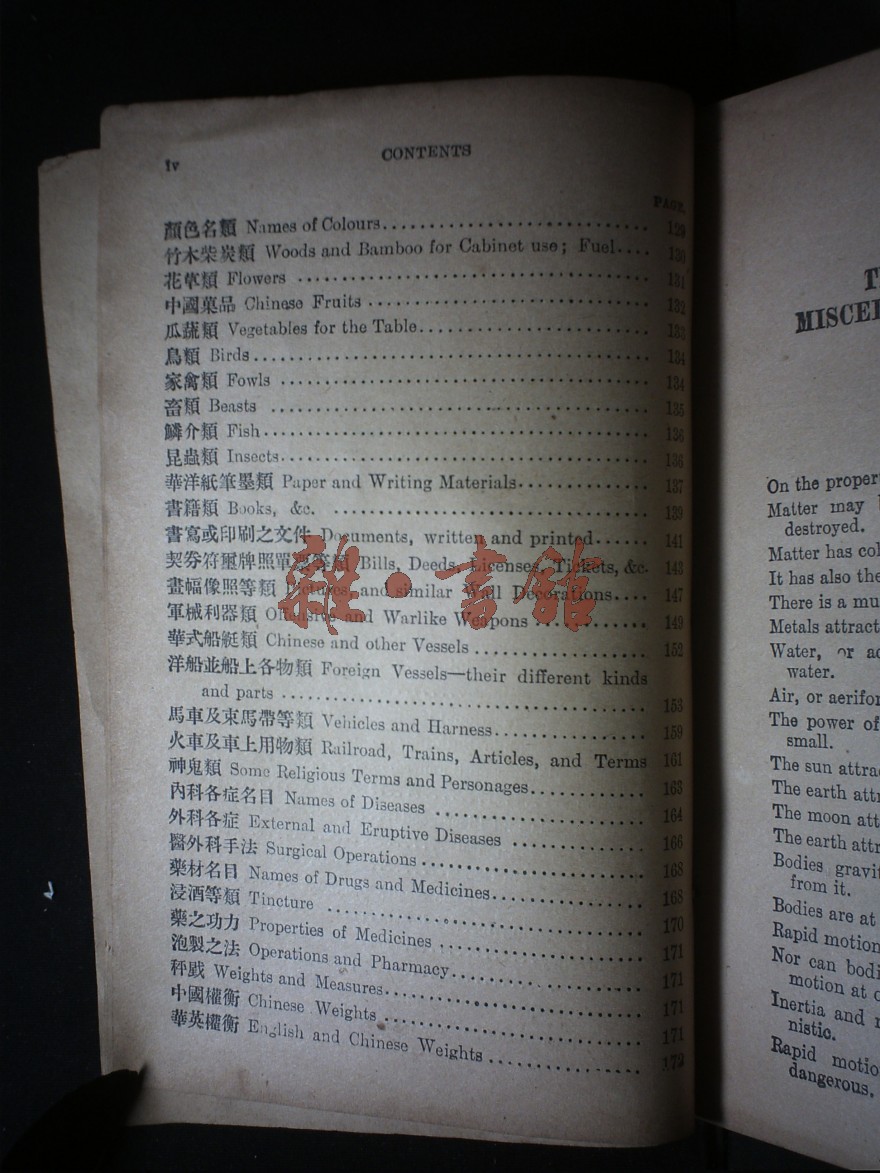 iv
CONTENTS
PAGE.
顏色名類 Names of Colours 129
竹木柴炭類 Woods and Bamboo for Cabinet use; Fuel 130
花草類 Flowers 131
中國菓品 Chinese Fruits 132
瓜蔬類 Vegetables for the Table 133
鳥類 Birds 134
家禽類 Fowls 134
畜類 Beasts 135
鱗介類 Fish 136
昆蟲類 Insects 136
華洋紙筆墨類 Paper and Writing Materials 137
書籍類 Books, &c. 139
書寫或印刷之文件 Documents, written and printed 141
契券符璽牌照單 等類 Bills, Deeds, Licenses, Tickets, &c. 143
畫幅像照等類 Pictures, and similar Wall Decorations 147
軍械利器類 Offensive and Warlike Weapons 149
華式船艇類 Chinese and other Vessels 152
洋船並船上各物類 Foreign Vessels—their different kinds
and parts 153
馬車及束馬帶等類 Vehicles and Harness 159
火車及車上用物類 Railroad, Trains, Articles, and Terms 161
神鬼類 Some Religious Terms and Personages 163
內科各症名目 Names of Diseases 164
外科各症 External and Eruptive Diseases 166
醫外科手法 Surgical Operations 168
藥材名目 Names of Drugs and Medicines 168
浸酒等類 Tincture 170
藥之功力 Properties of Medicines 171
泡製之法 Operations and Pharmacy 171
秤戥 Weights and Measures 171
中國權衡 Chinese Weights 171
華英權衡 English and Chinese Weights 172
雜·書館
MISCEL
On the proper
Matter may
destroyed.
Matter has col
It has also the
There is a mu
Metals attract
Water, or ac
water.
Air, or aerifor
The power of
small.
The sun attrac
The earth attr
The moon att
The earth attr
Bodies gravit
from it.
Bodies are at
Rapid motion
Nor can bodi
motion at o
Inertia and r
nistic.
Rapid motio
dangerous.